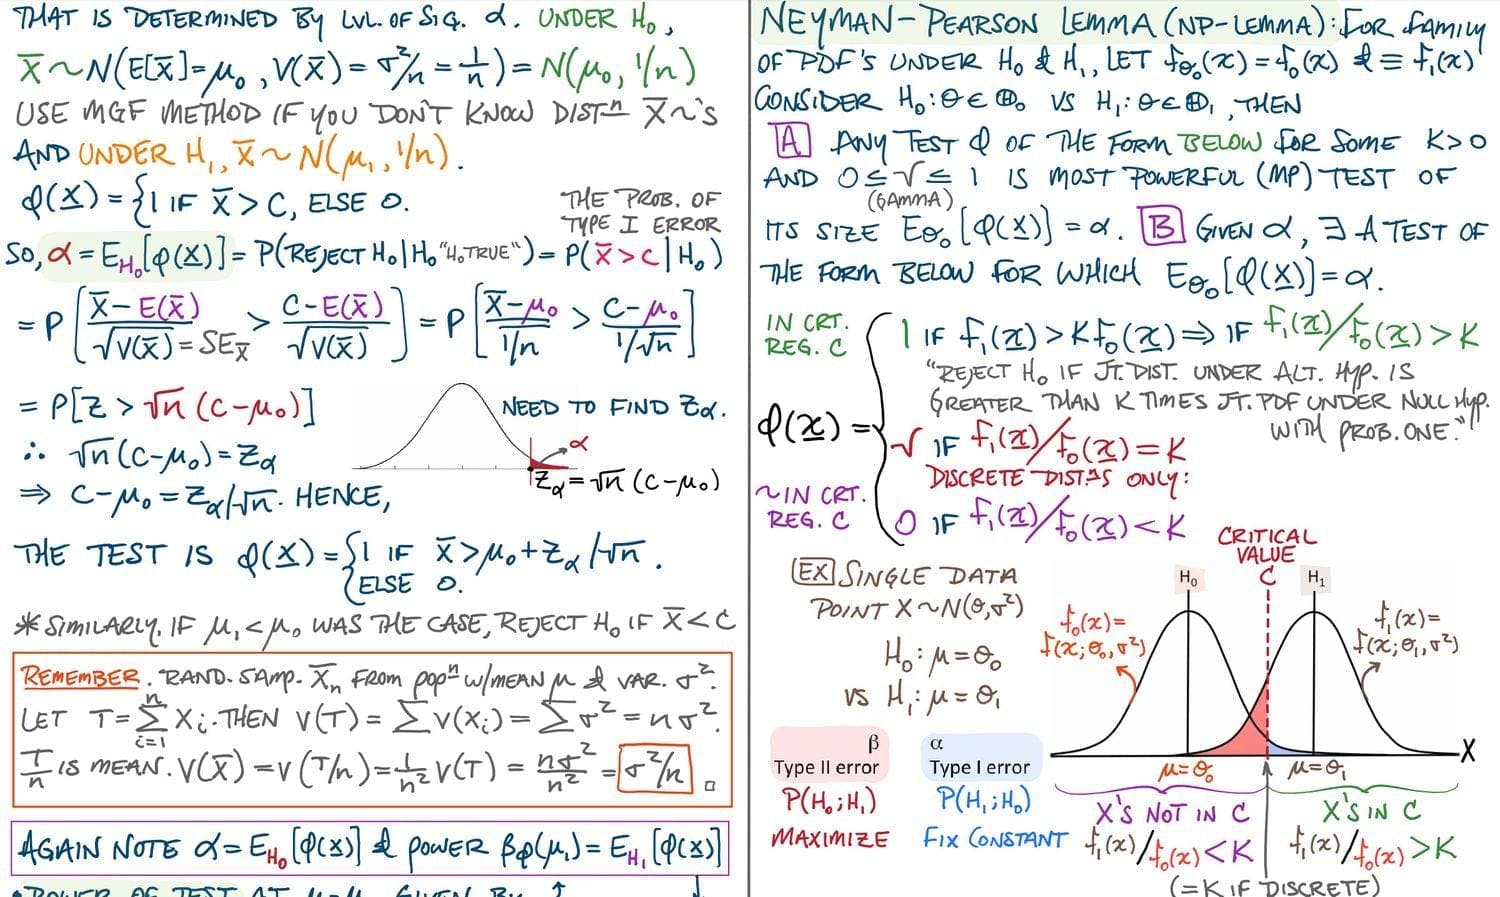 THAT IS DETERMINED BY LVL. OF SIG. α. UNDER H₀,
X̄ ~ N(E[X̄]=μ₀, V(X̄)=σ²/n=1/n) = N(μ₀, 1/n)
USE MGF METHOD IF YOU DON'T KNOW DISTⁿ X̄~'S
AND UNDER H₁, X̄ ~ N(μ₁, 1/n).
φ(X) = {1 IF X̄ > C, ELSE 0.
THE PROB. OF
TYPE I ERROR
SO, α = E_H₀[φ(X)] = P(REJECT H₀|H₀ "H₀ TRUE") = P(X̄ > C | H₀)
= P[(X̄ - E(X̄))/√V(X̄) = SE_X̄ > (C - E(X̄))/√V(X̄)] = P[(X̄ - μ₀)/(1/n) > (C - μ₀)/(1/√n)]
= P[Z > √n (C - μ₀)]
NEED TO FIND Zα.
α
∴ √n (C - μ₀) = Zα
Zα = √n (C - μ₀)
⇒ C - μ₀ = Zα/√n. HENCE,
THE TEST IS φ(X) = {1 IF X̄ > μ₀ + Zα/√n.
ELSE 0.
* SIMILARLY, IF μ₁ < μ₀ WAS THE CASE, REJECT H₀ IF X̄ < C
REMEMBER. RAND. SAMP. X̄n FROM POPⁿ W/MEAN μ & VAR. σ².
LET T = Σ(i=1 to n) Xi. THEN V(T) = ΣV(Xi) = Σσ² = nσ².
T/n IS MEAN. V(X̄) = V(T/n) = 1/n² V(T) = nσ²/n² = σ²/n □
AGAIN NOTE α = E_H₀[φ(X)] & POWER βφ(μ₁) = E_H₁[φ(X)]
NEYMAN-PEARSON LEMMA (NP-LEMMA): FOR FAMILY
OF PDF'S UNDER H₀ & H₁, LET fθ₀(x) = f₀(x) & ≡ f₁(x)
CONSIDER H₀: θ∈Θ₀ VS H₁: θ∈Θ₁, THEN
A ANY TEST φ OF THE FORM BELOW FOR SOME K>0
AND 0 ≤ γ ≤ 1 IS MOST POWERFUL (MP) TEST OF
(GAMMA)
ITS SIZE Eθ₀[φ(X)] = α. B GIVEN α, ∃ A TEST OF
THE FORM BELOW FOR WHICH Eθ₀[φ(X)] = α.
IN CRT.
REG. C
1 IF f₁(x) > K f₀(x) ⇒ IF f₁(x)/f₀(x) > K
"REJECT H₀ IF JT. DIST. UNDER ALT. HYP. IS
GREATER THAN K TIMES JT. PDF UNDER NULL HYP.
WITH PROB. ONE."
φ(x) =
γ IF f₁(x)/f₀(x) = K
DISCRETE DIST.ⁿS ONLY:
~IN CRT.
REG. C
0 IF f₁(x)/f₀(x) < K
EX SINGLE DATA
POINT X~N(θ,σ²)
H₀: μ = θ₀
VS H₁: μ = θ₁
CRITICAL
VALUE
C
H₀
H₁
f₀(x) =
f(x; θ₀, σ²)
f₁(x) =
f(x; θ₁, σ²)
X
μ = θ₀
μ = θ₁
β
Type II error
P(H₀; H₁)
MAXIMIZE
α
Type I error
P(H₁; H₀)
FIX CONSTANT
X'S NOT IN C
f₁(x)/f₀(x) < K
X'S IN C
f₁(x)/f₀(x) > K
(= K IF DISCRETE)